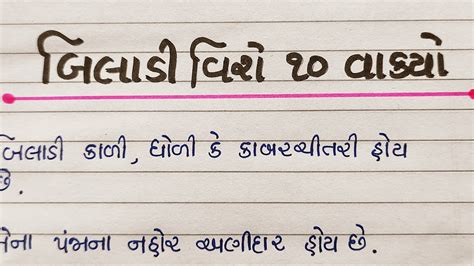 બિલાડી વિશે ૧૦ વાક્યો
બિલાડી કાળી, ધોળી કે કાબરચીતરી હોય
છે.
તેના પંજાના નહોર અણીદાર હોય છે.